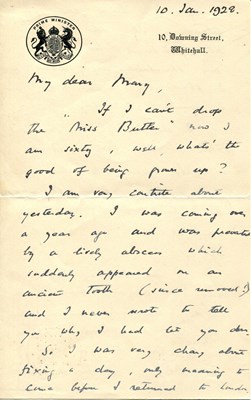 10. Jan. 1928.
PRIME MINISTER
10, Downing Street,
Whitehall.
My dear Mary,
"If I can't drop
the "Miss Butler" now I
am sixty, well, what's the
good of being grown up?
I am very contrite about
yesterday. I was coming over
a year ago and was prevented
by a lively abscess which
suddenly appeared on an
ancient tooth (since removed!)
and I never wrote to tell
you why I had let you down.
So I was very chary about
fixing a day, only meaning to
come before I returned to London